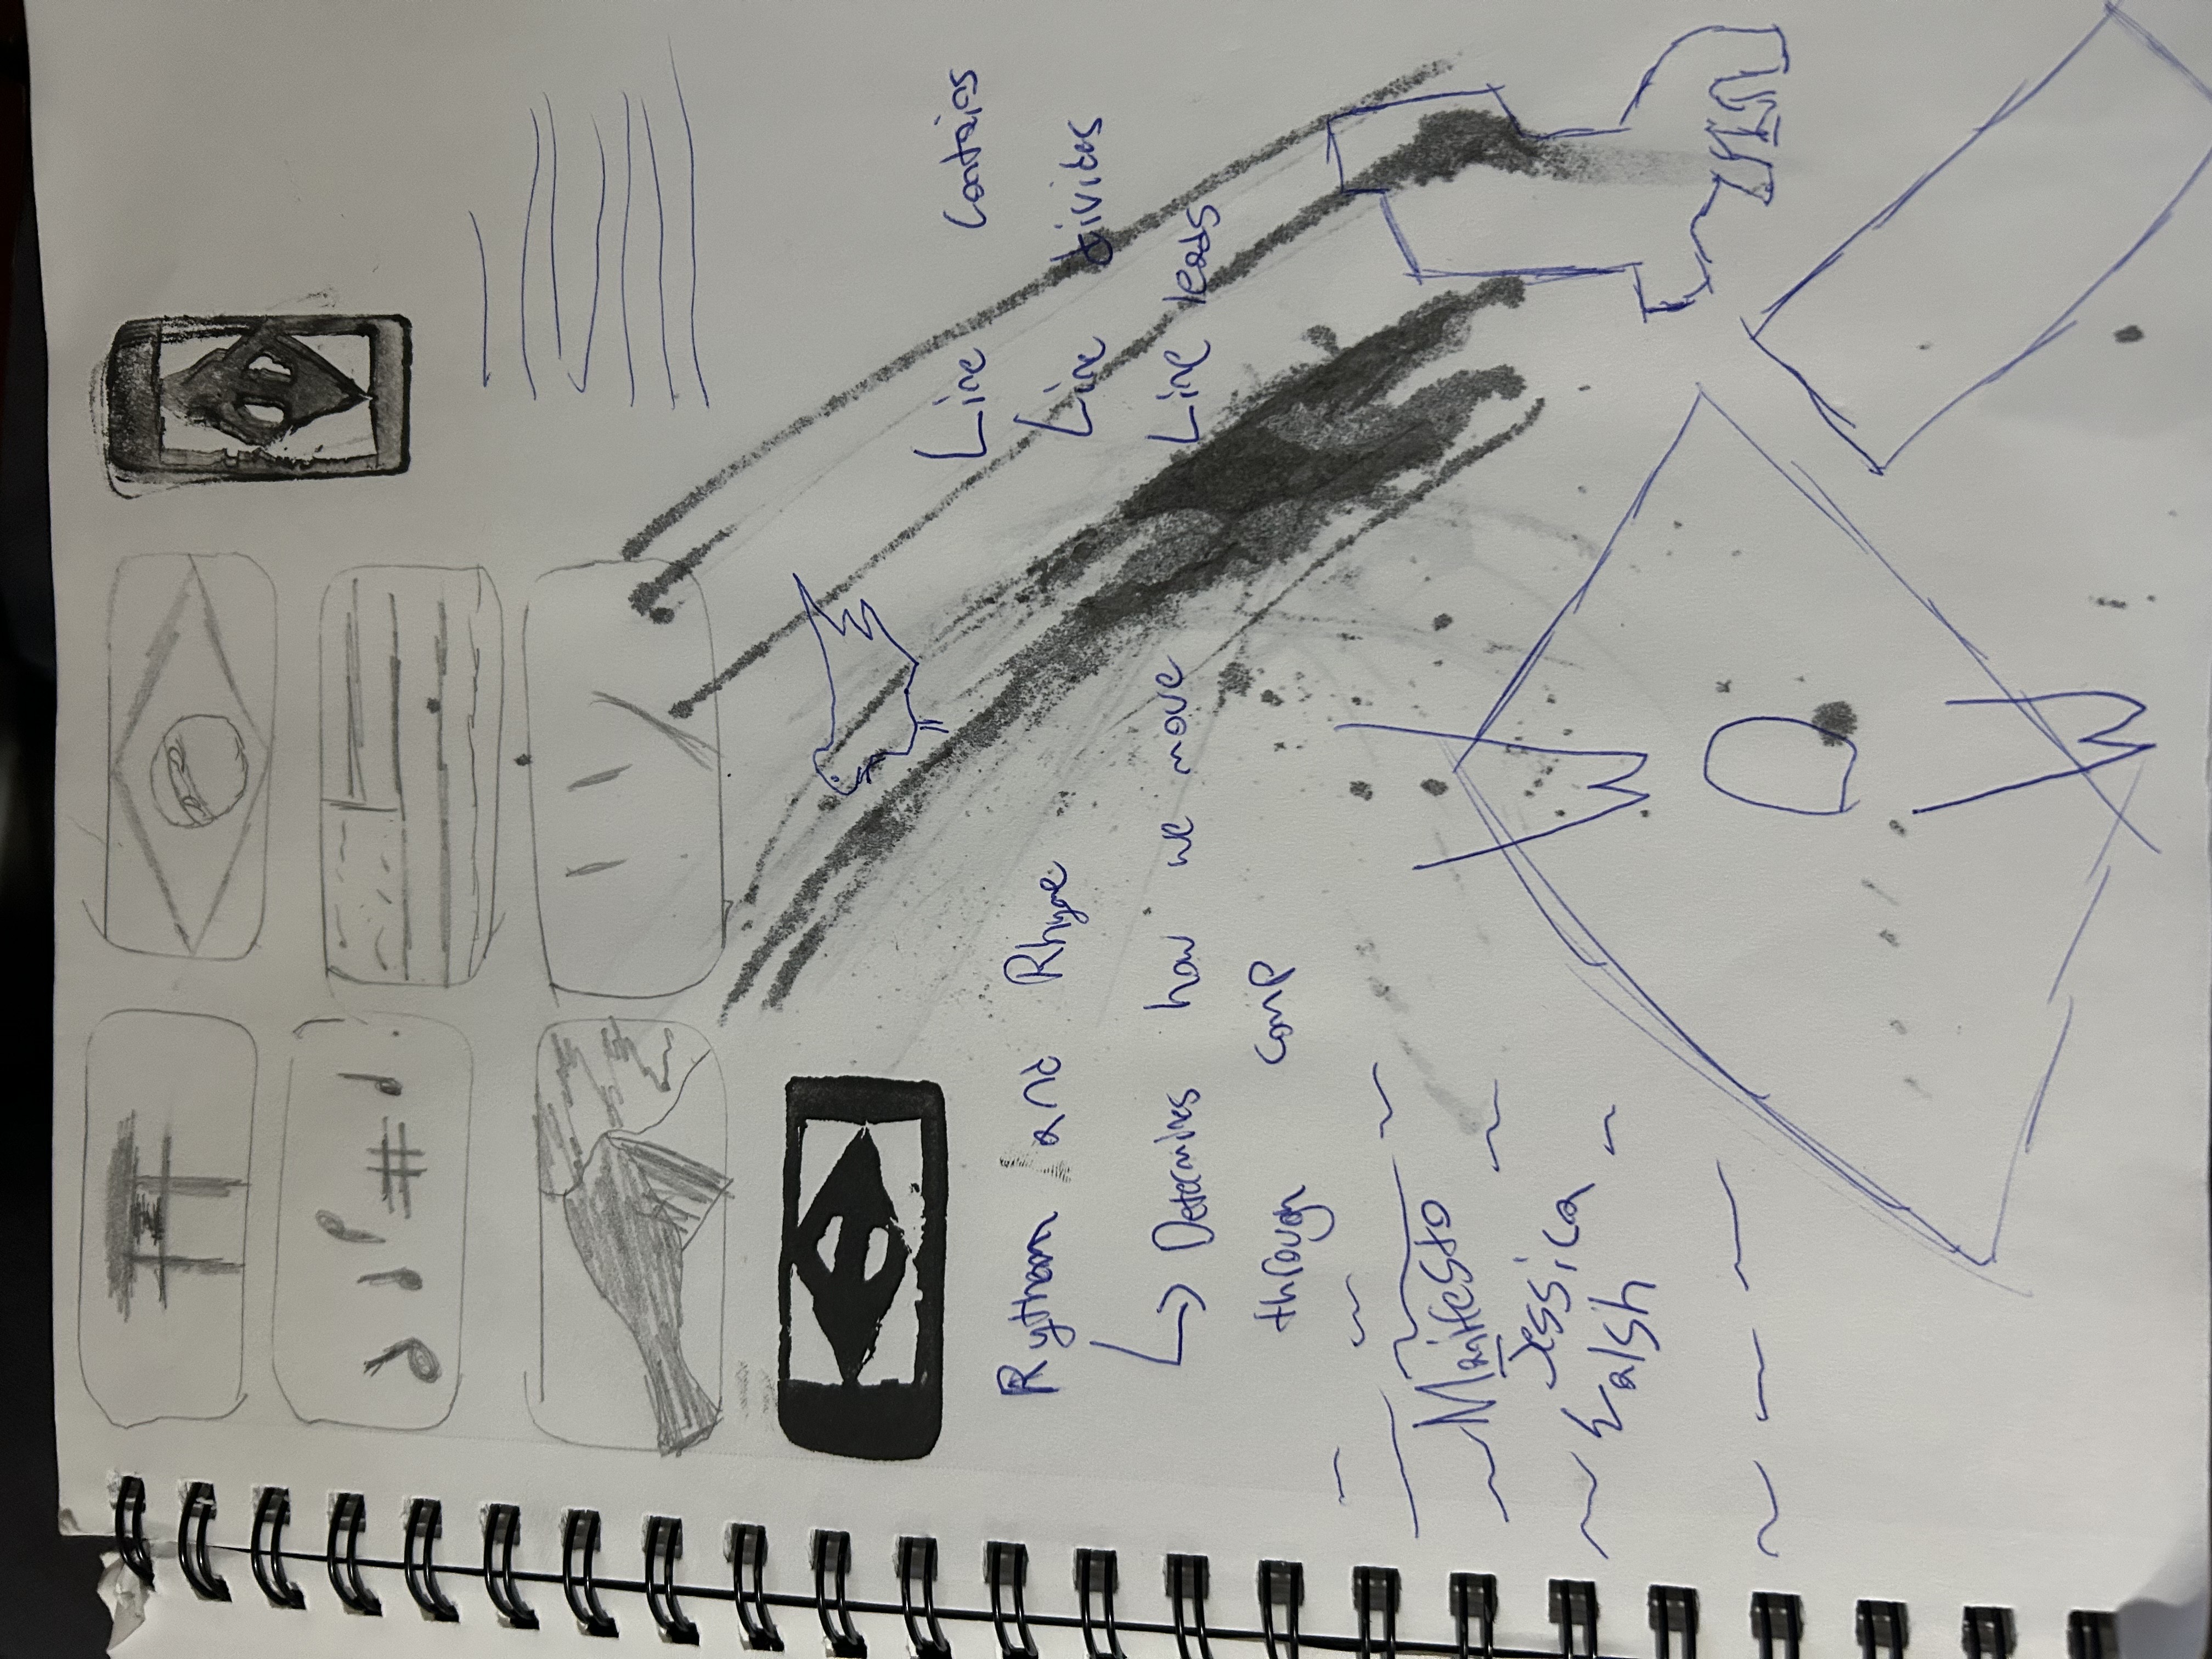 Rythom and Rhyme
Determines how we move
through comp
Line contains
Line divides
Line leads
Manifesto
Jessica
Walsh
W
O
W